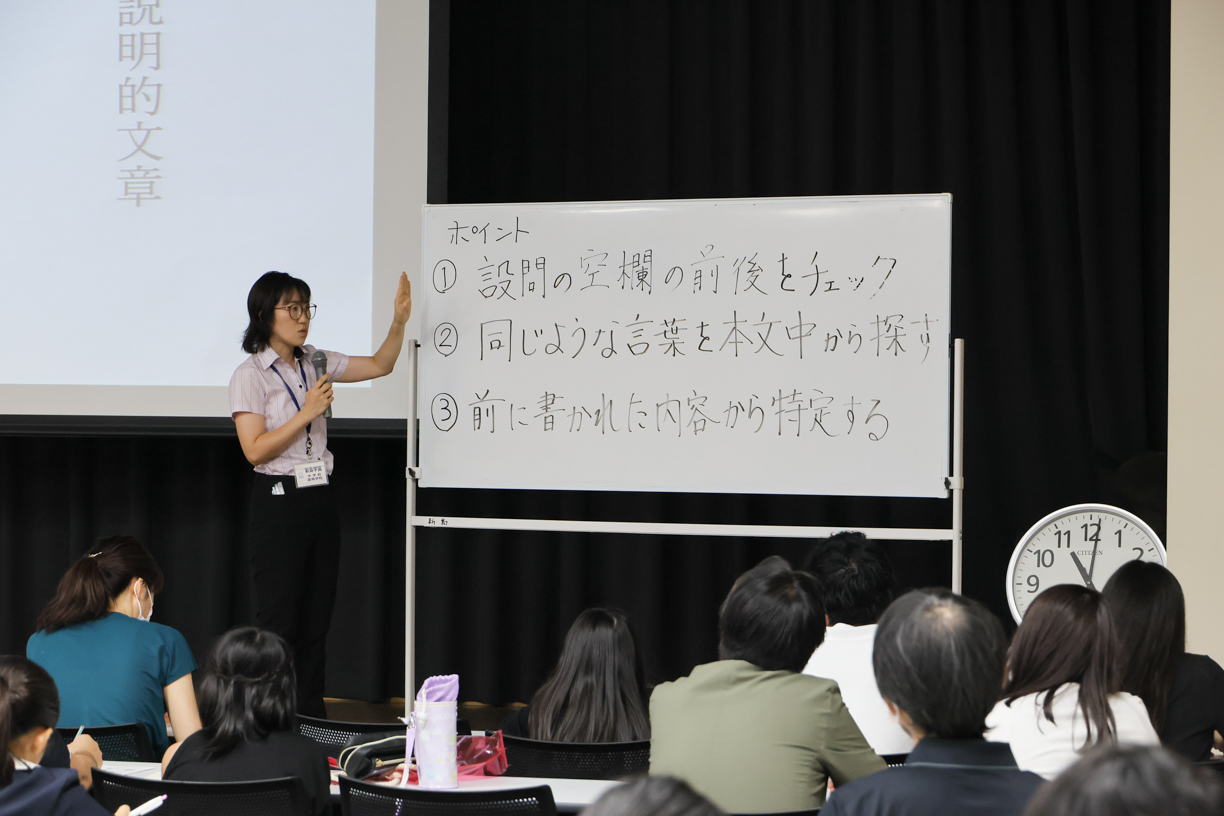 説明的文章
ポイント
① 設問の空欄の前後をチェック
② 同じような言葉を本文中から探す
③ 前に書かれた内容から特定する
CITIZEN
9
10
11
12
1
2